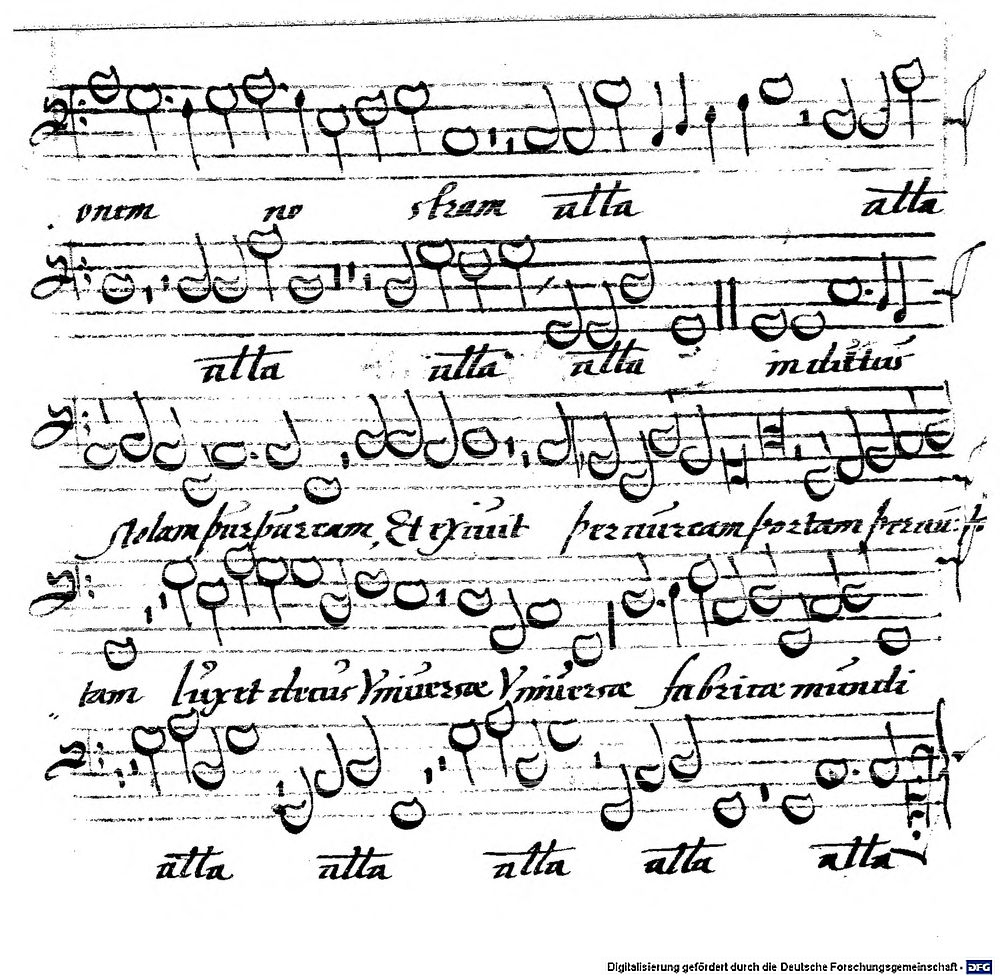 onem no stram alla alla
alla alla alla indutus
stolam purpuream, Et exiuit per auream portam per au: por
tam lux et decus Vniuersæ Vniuersæ fabricæ mundi
alla alla alla alla alla
Digitalisierung gefördert durch die Deutsche Forschungsgemeinschaft - DFG